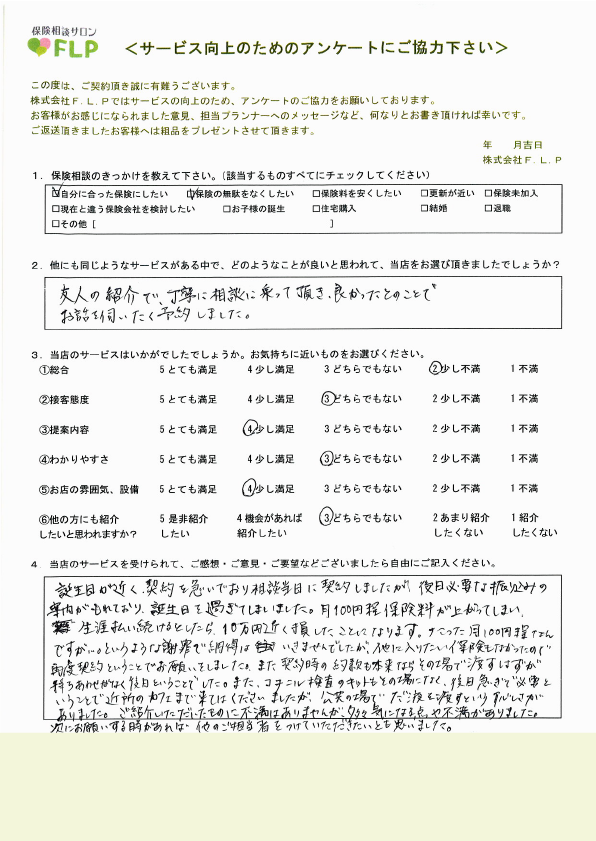 保険相談サロン
FLP
＜サービス向上のためのアンケートにご協力下さい＞
この度は、ご契約頂き誠に有難うございます。
株式会社F.L.Pではサービスの向上のため、アンケートのご協力をお願いしております。
お客様がお感じになられました意見、担当プランナーへのメッセージなど、何なりとお書き頂ければ幸いです。
ご返送頂きましたお客様へは粗品をプレゼントさせて頂きます。
年 月吉日
株式会社F.L.P
1．保険相談のきっかけを教えて下さい。(該当するものすべてにチェックしてください)
☑自分に合った保険にしたい ☑保険の無駄をなくしたい □保険料を安くしたい □更新が近い □保険未加入
□現在と違う保険会社を検討したい □お子様の誕生 □住宅購入 □結婚 □退職
□その他 [ ]
2．他にも同じようなサービスがある中で、どのようなことが良いと思われて、当店をお選び頂きましたでしょうか？
友人の紹介で、丁寧に相談に乗って頂き、良かったとのことで
お話を伺いたく予約しました。
3．当店のサービスはいかがでしたでしょうか。お気持ちに近いものをお選びください。
①総合 5とても満足 4少し満足 3どちらでもない ②少し不満 1不満
②接客態度 5とても満足 4少し満足 ③どちらでもない 2少し不満 1不満
③提案内容 5とても満足 ④少し満足 3どちらでもない 2少し不満 1不満
④わかりやすさ 5とても満足 4少し満足 ③どちらでもない 2少し不満 1不満
⑤お店の雰囲気、設備 5とても満足 ④少し満足 3どちらでもない 2少し不満 1不満
⑥他の方にも紹介 5是非紹介 4機会があれば ③どちらでもない 2あまり紹介 1紹介
したいと思われますか？ したい 紹介したい したくない したくない
4．当店のサービスを受けられて、ご感想・ご意見・ご要望などございましたら自由にご記入ください。
誕生日が近く、契約を急いでおり相談当日に契約しましたが、後日必要な振り込みの
案内がもれており、誕生日を過ぎてしましいました。月100円程保険料が上がってしまい、
生涯払い続けるとしたら、10万円近く損したことになります。たった月100円程なん
ですが…というような謝罪で納得は いきませんでしたが、他に入りたい保険もなかったので
再度契約ということでお願いをしました。また契約時の約款も本来ならその場で渡すはずが
持ちあわせがなく後日ということでした。また、コチニン検査のキットもその場になく、後日急ぎで必要と
いうことで近所のカフェまで来てはくださいましたが、公共の場で だ液を渡すという
ありました。ご紹介いただいたものに不満はありませんが、多々気になる点や不満がありました。
次にお願いする時があれば、他のご担当者をつけていただきたいとも思いました。